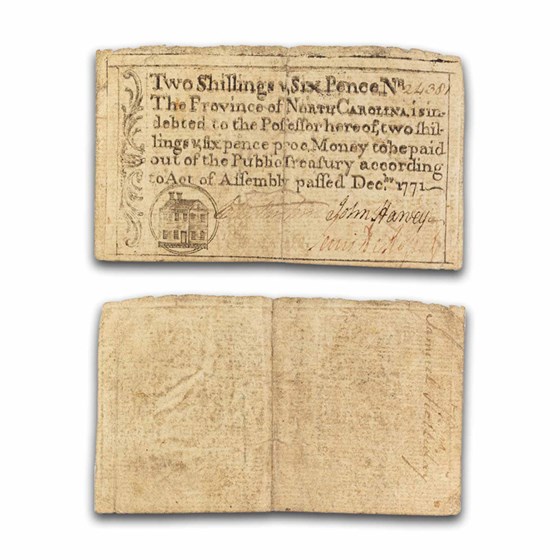 Two Shillings &, Six Pence, No. 24381
The Province of NORTH CAROLINA, is in-
debted to the Possessor hereof, two shil-
lings &, six pence proc. Money to be paid
out of the Public Treasury according
to Act of Assembly passed Decbr. 1771
John Harvey
Lewis
Samuel